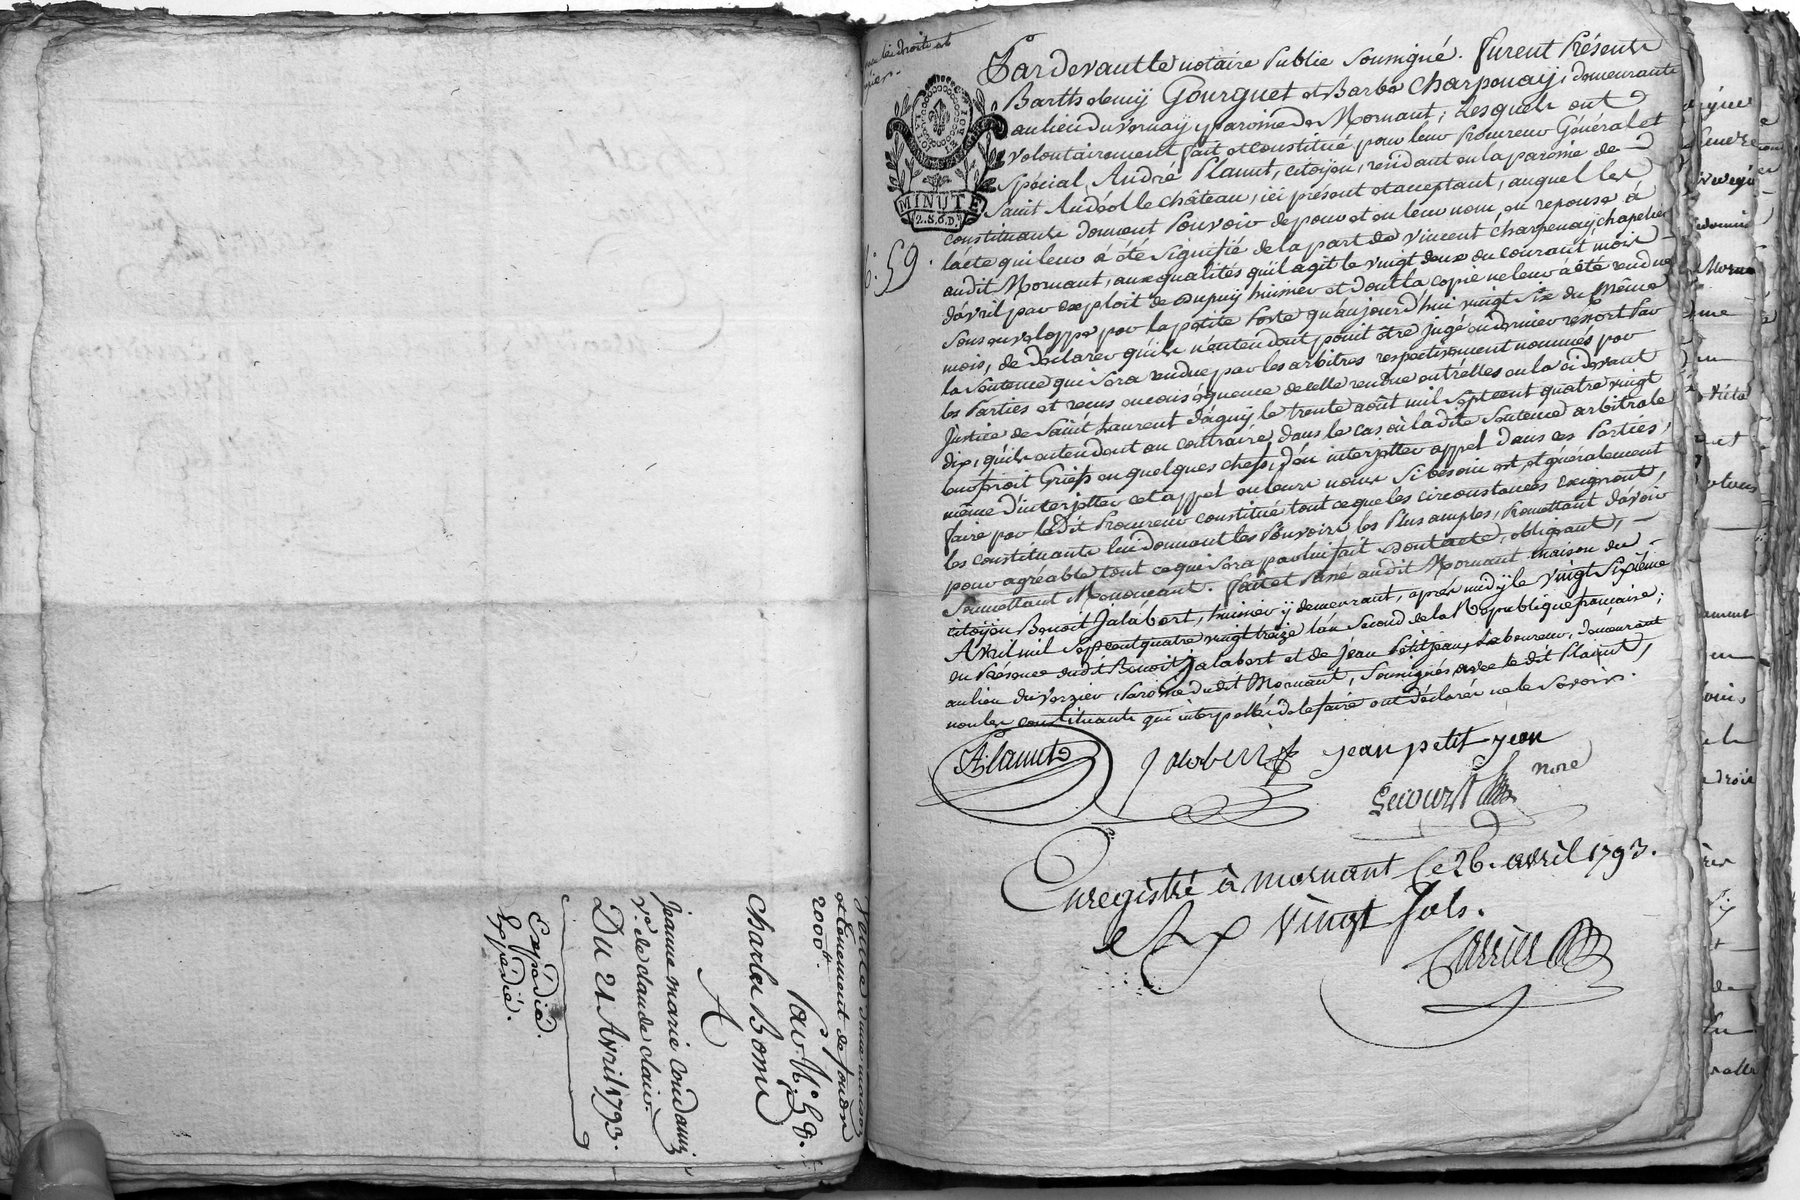 Vente d'une maison
et tenement de fonds
2000#.
Par Mr.
Charle Bonne
A
jeanne marie Condamin
ve. de claude clair.
Du 21 Avril 1793.
Expédié.
Expédié.
Pardevant le notaire Public Soussigné. furent Présents
Barthelemÿ Gourguet et Barbe Charpenay, demeurants
au lieu du vernaÿ, paroisse de Mornant; Lesquels ont
volontairement fait et constitué pour leur Procureur Général et
Spécial, André Planut, citoÿen, résidant en la paroisse de
Saint Andéol le château, ici présent et acceptant, auquel les
constituants donnent Pouvoir de pour et en leur nom, en reponse à
lacte qui leur à été signifié de la part de vincent charpenaÿ chapelier
audit Mornant, aux qualités qu'il agit le vingt deux du courant mois
d'avril par exploit de Dupuy huissier et dont la copie ne leur a été rendue
Sous enveloppe par la petite Poste qu'aujourd'hui vingt Six du Même
mois, de déclarer qu'ils n'entendent point être jugé en dernier ressort Par
la Sentence qui Sera rendue par les arbitres respectivement nommés par
les Parties et reçus en conséquence de celle rendue entr'elles en la ci devant
Justice de Saint Laurent d'aguÿ le trente août mil Sept cent quatre vingt
dix, qu'ils entendent au contraire dans le cas où la dite Sentence arbitrale
leur feroit Griefs en quelques chefs, d'en interjetter appel dans ces Parties,
même d'interjetter cet appel en leurs noms Si besoin est, et généralement
faire par le Dit Procureur constitué tout ce que les circonstances exigeront,
les constituants lui donnant les Pouvoirs les Plus amples, Promettant d'avoir
pour agréable tout ce qui Sera par lui fait dont acte, obligeant,
Soumettant Renonceant. fait et Passé audit Mornant maison du
citoÿen Benoît Jalabert, huissier ÿ demeurant, après midÿ le vingt Sixième
Avril mil Sept cent quatre vingt treize l'an Second de la République française;
en Présence dudit Benoit jalabert et de jean Petitjean, Laboureur, demeurant
au lieu du verzier, Paroisse dudit Mornant, Soussignés avec le dit Planut,
non les constituants qui interpellés de le faire ont déclarés ne le Savoir.
MINUTE
2. S. 6. D.
59.
Planut
jean petit jean
nore
Enregistré à mornant Le 26. avril 1793.
vingt Sols.
Carrier